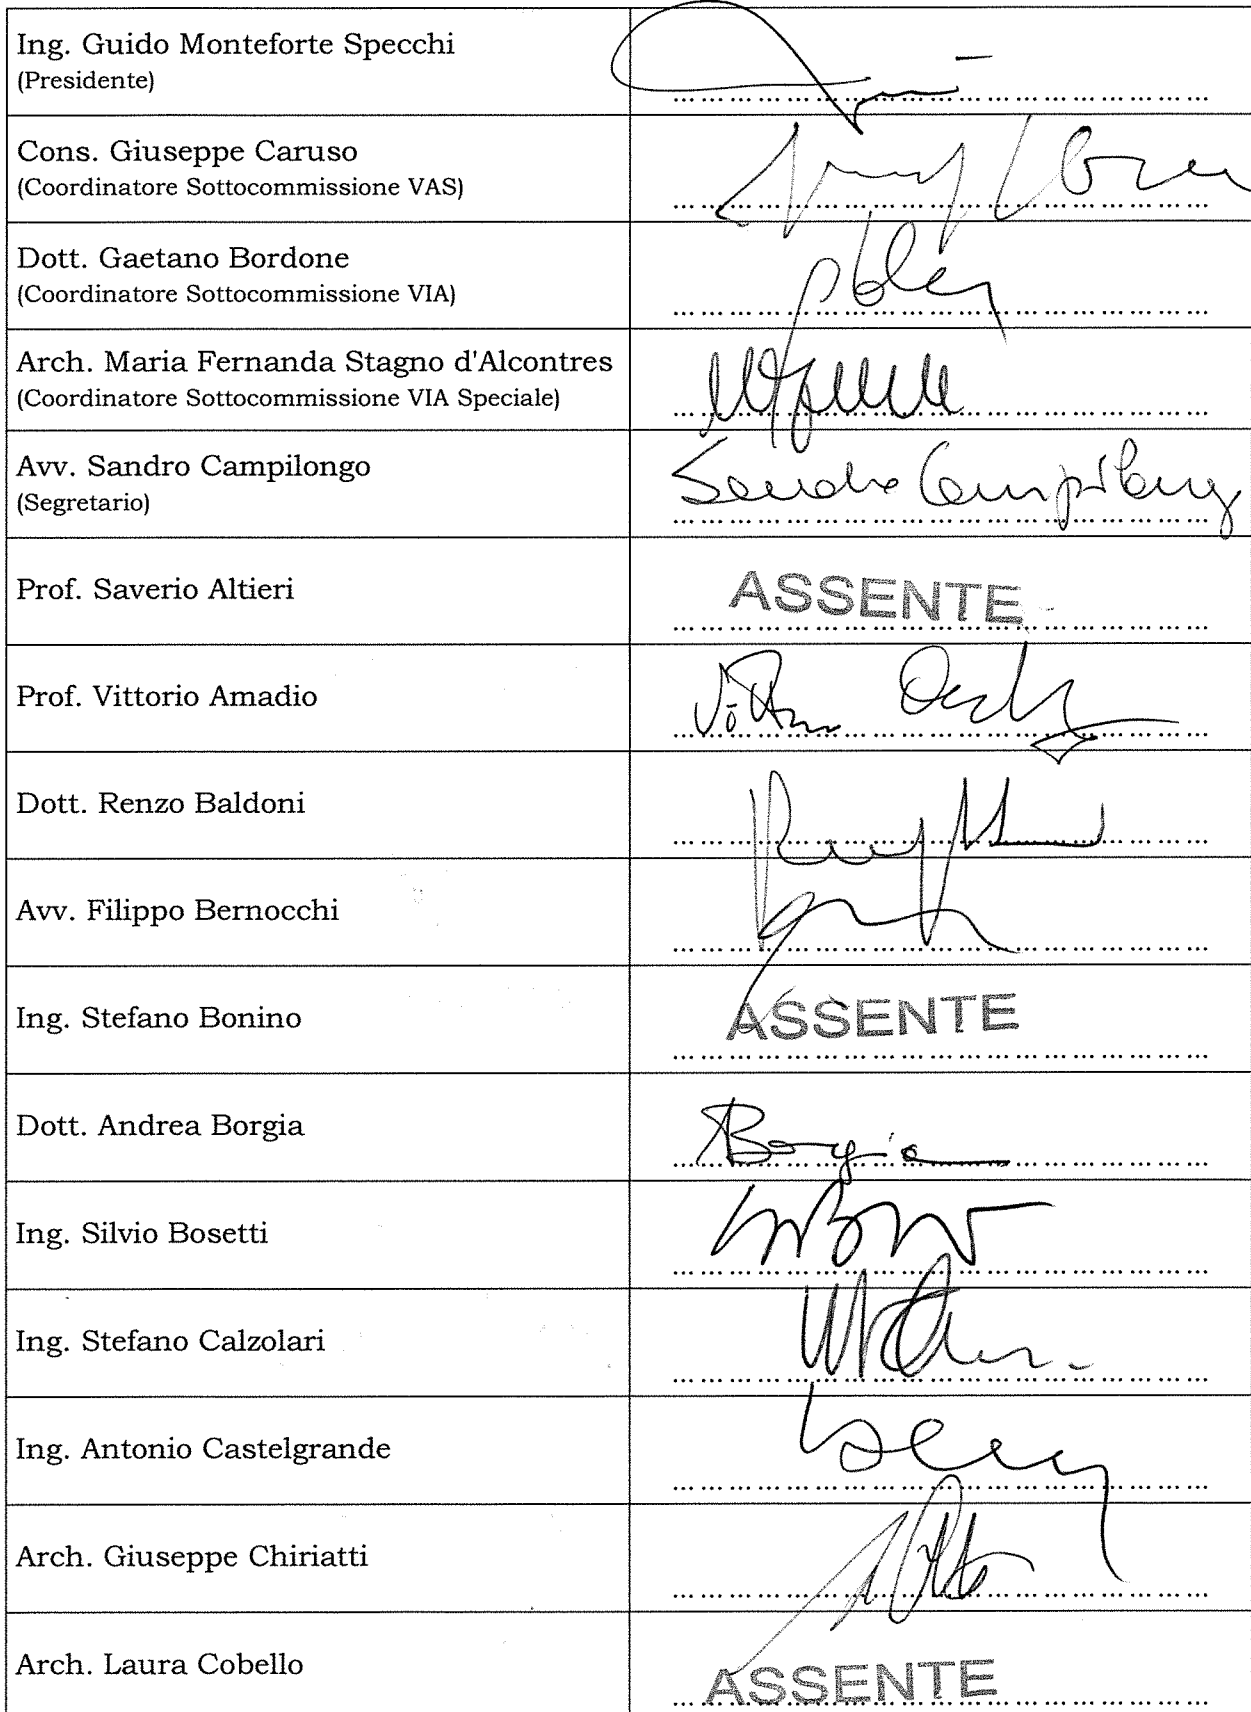 Ing. Guido Monteforte Specchi
(Presidente)
Cons. Giuseppe Caruso
(Coordinatore Sottocommissione VAS)
Dott. Gaetano Bordone
(Coordinatore Sottocommissione VIA)
Arch. Maria Fernanda Stagno d'Alcontres
(Coordinatore Sottocommissione VIA Speciale)
Avv. Sandro Campilongo
(Segretario)
Sandro Campilongo
Prof. Saverio Altieri
ASSENTE
Prof. Vittorio Amadio
Dott. Renzo Baldoni
Avv. Filippo Bernocchi
Ing. Stefano Bonino
ASSENTE
Dott. Andrea Borgia
Borgia
Ing. Silvio Bosetti
Ing. Stefano Calzolari
Ing. Antonio Castelgrande
Arch. Giuseppe Chiriatti
Arch. Laura Cobello
ASSENTE